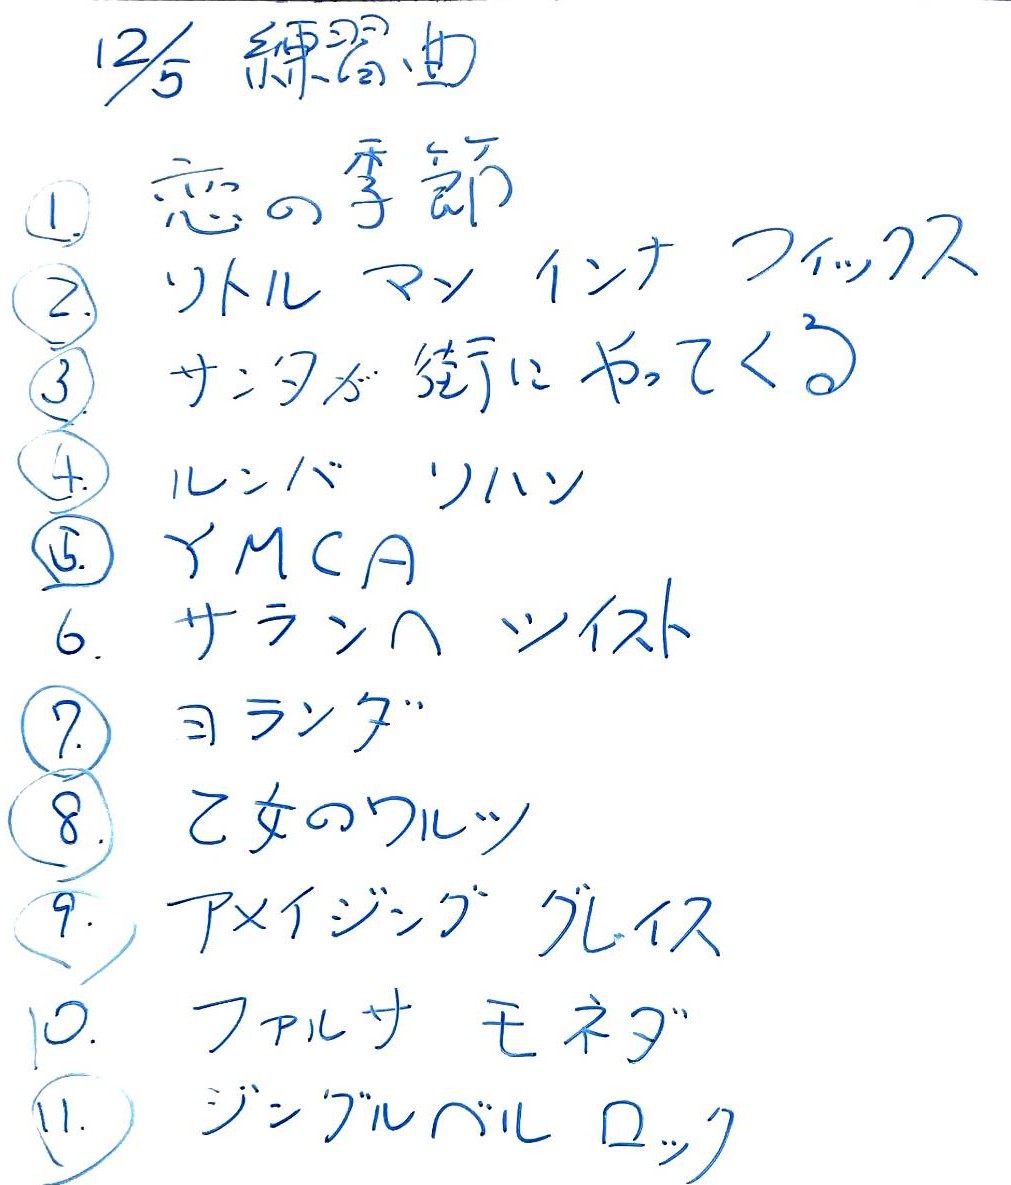 12/5 練習曲
1. 恋の季節
2. リトル マン インナ フィックス
3. サンタが街にやってくる
4. ルンバ リハン
5. YMCA
6. サランヘ ツイスト
7. ヨランダ
8. 乙女のワルツ
9. アメイジング グレイス
10. ファルサ モネダ
11. ジングルベル ロック